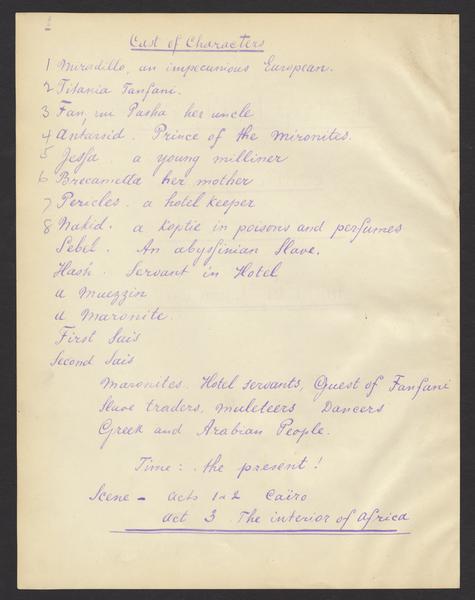 1
Cast of Characters
1 Miradillo, an impecunious European.
2 Titania Fanfani.
3 Fanfani Pasha her uncle
4 Antarsid. Prince of the Mironites.
5 Jessa. a young milliner
6 Brecametta her mother
7 Pericles. a hotel keeper
8 Nakid. a Koptic in poisons and perfumes
Sebel. An abyssinian Slave.
Hash. Servant in Hotel
a Muezzin
a Maronite.
First Sais
Second Sais
Maronites. Hotel servants, Guest of Fanfani
Slave traders, muleteers Dancers
Greek and Arabian People.
Time: . the present!
Scene - Acts 1 & 2 Caïro
Act 3 . The interior of Africa